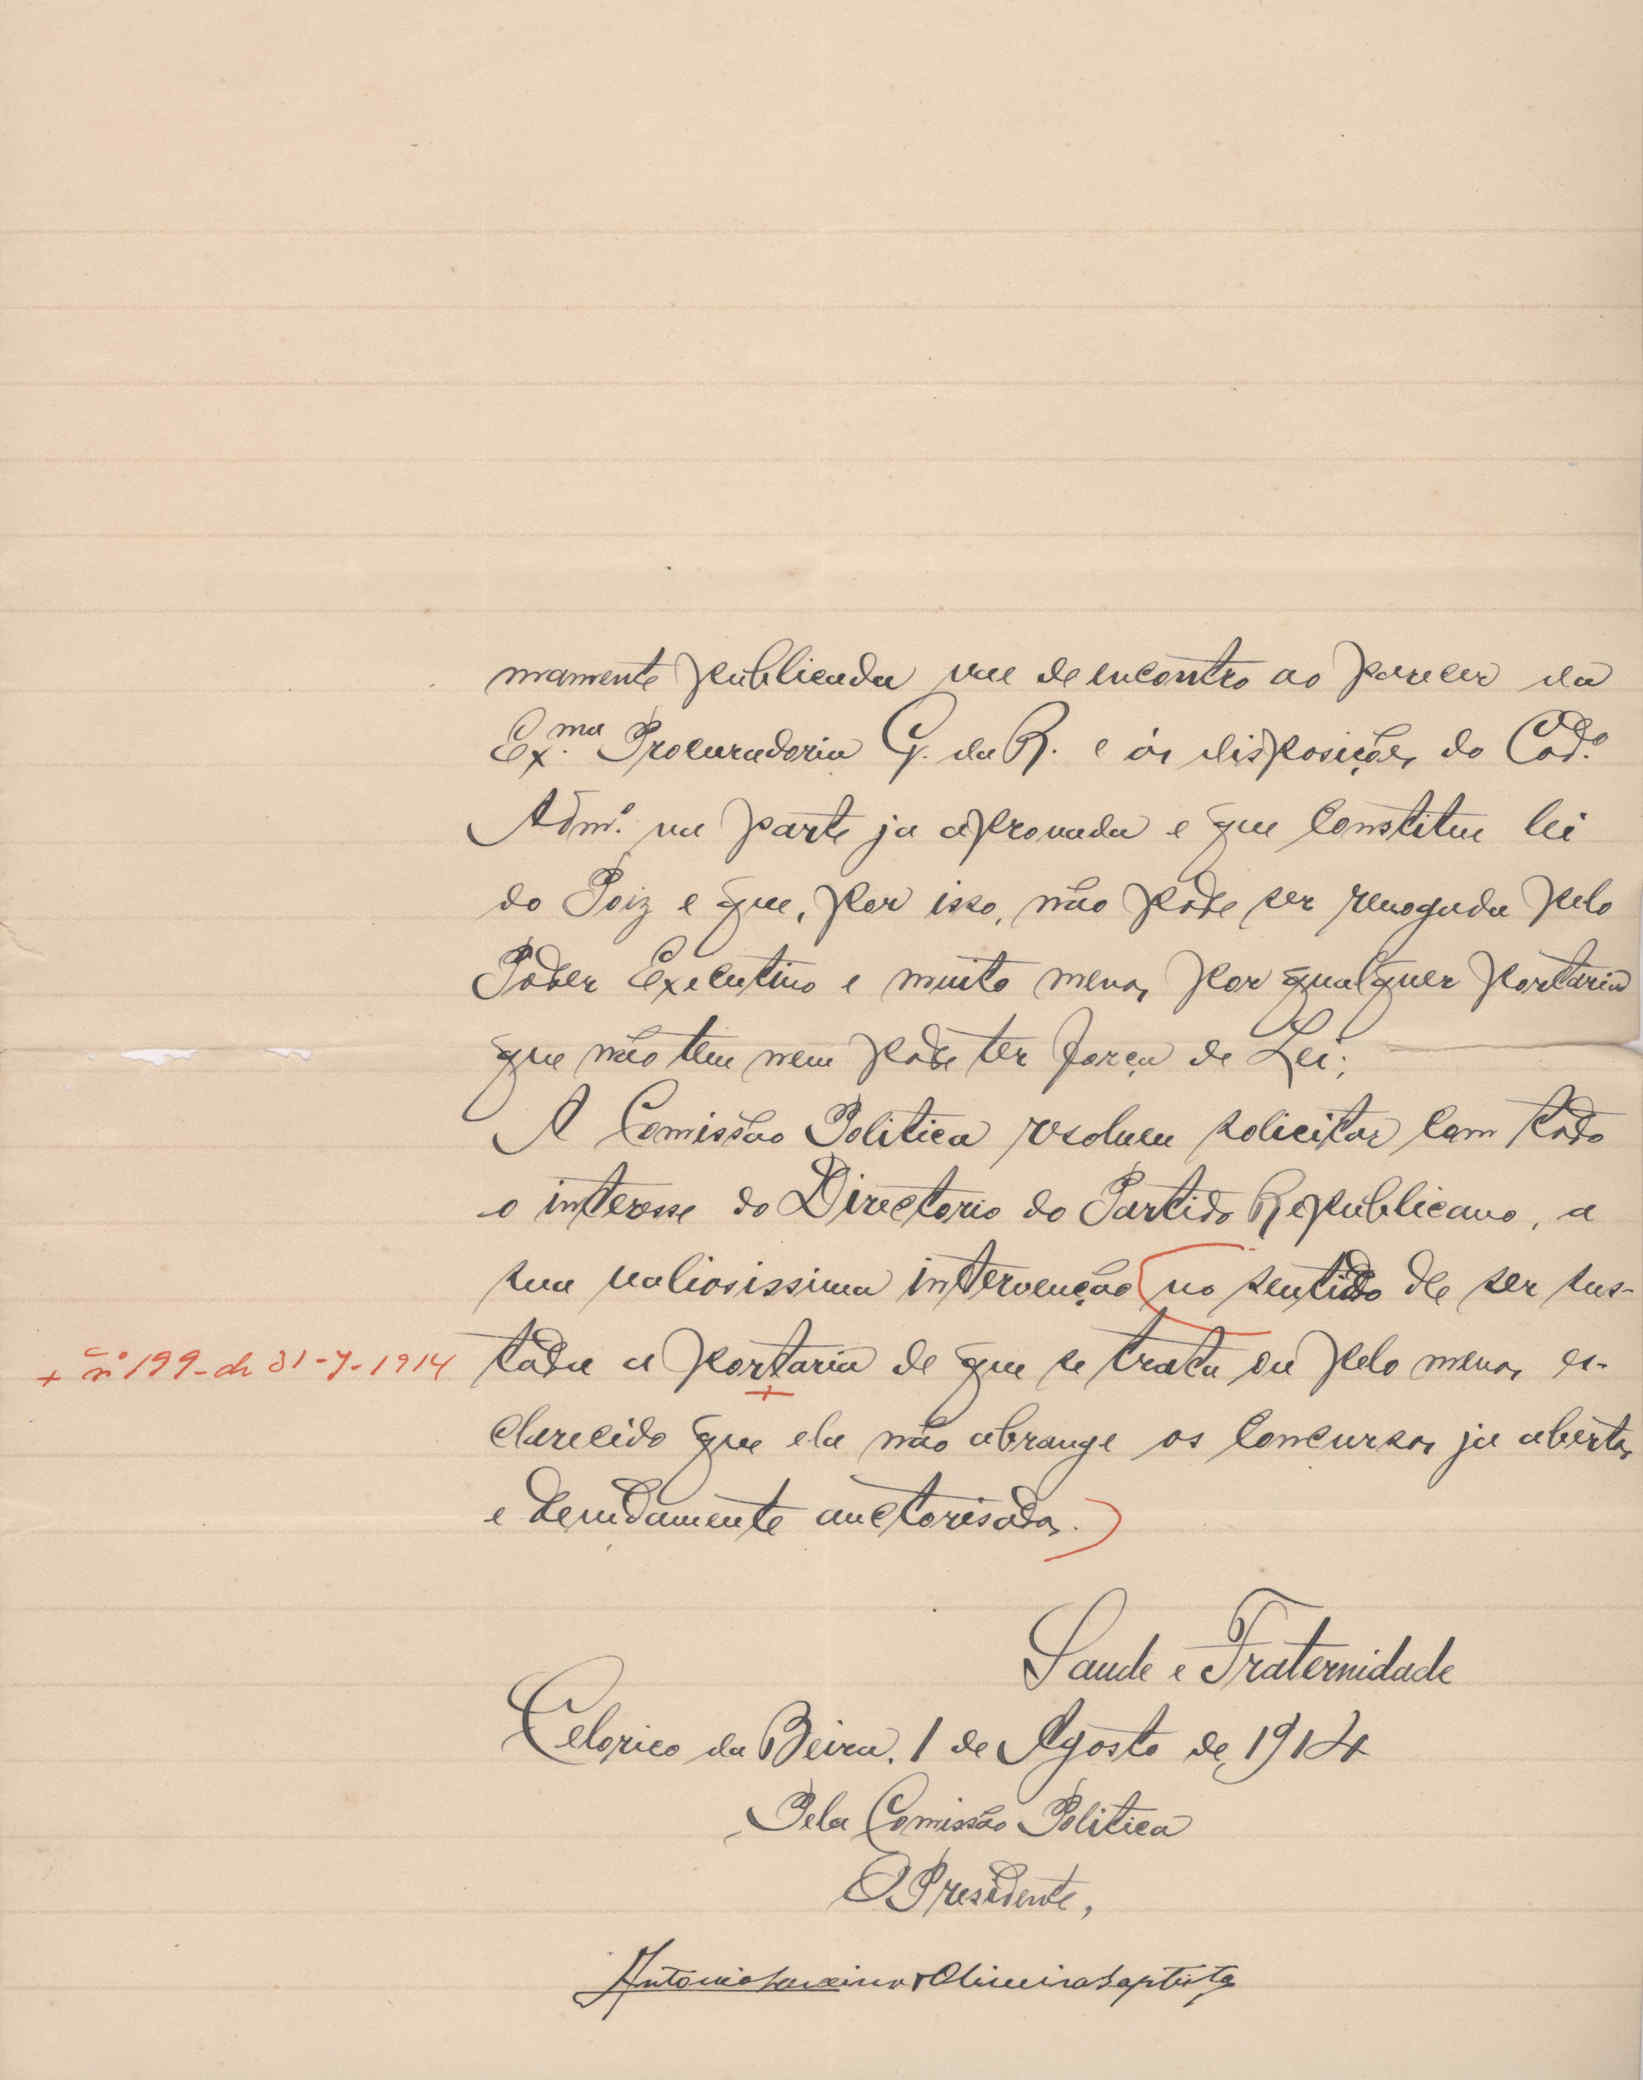 mamente publicada vae de encontro ao parecer da
Ex.ma Procuradoria G. da R. e ás disposições do Cod.º
Adm.º na parte ja aprovada e que constitue lei
do Paiz e que, por isso, não pode ser revogada pelo
Poder Executivo e muito menos por qualquer portaria
que não tem nem pode ter força de Lei;
A Comissão Politica resolveu solicitar com todo
o interesse do Directorio do Partido Republicano, a
sua valiosissima intervenção (no sentido de ser sus-
+ nº 199 - de 31-7-1914 tada a portaria de que se trata ou pelo menos es-
clarecido que ela não abrange os concursos ja abertos
e devidamente auctorisados.)
Saude e Fraternidade
Celorico da Beira, 1 de Agosto de 1914
Pela Comissão Politica
O Presidente,
Antonio Oliveira Baptista